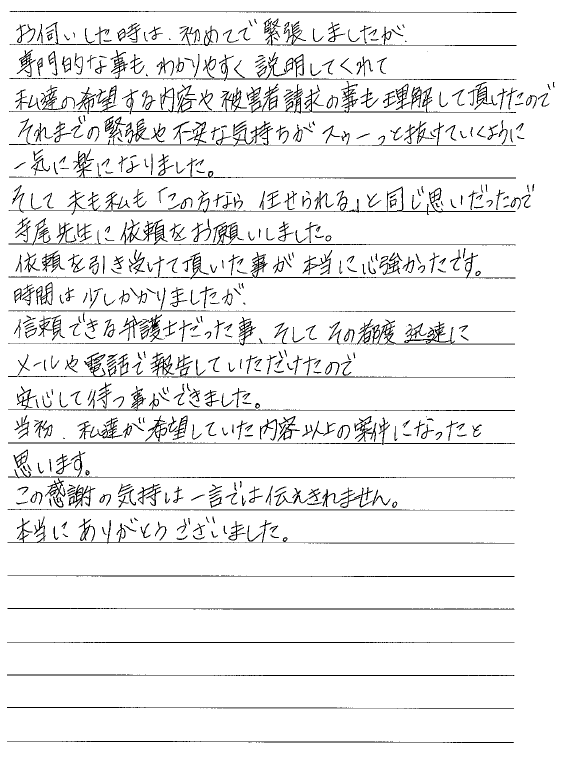 お伺いした時は、初めてで緊張しましたが、
専門的な事も、わかりやすく説明してくれて
私達の希望する内容や被害者請求の事も理解して頂けたので
それまでの緊張や不安な気持ちがスゥーっと抜けていくように
一気に楽になりました。
そして 夫も私も「この方なら 任せられる」と同じ思いだったので
寺尾先生に依頼をお願いしました。
依頼を引き受けて頂いた事が本当に心強かったです。
時間は少しかかりましたが、
信頼できる弁護士だった事、そして その都度 迅速に
メールや電話で報告していただけたので
安心して待つ事ができました。
当初、私達が希望していた内容以上の案件になったと
思います。
この感謝の気持は一言では伝えきれません。
本当に ありがとう ございました。